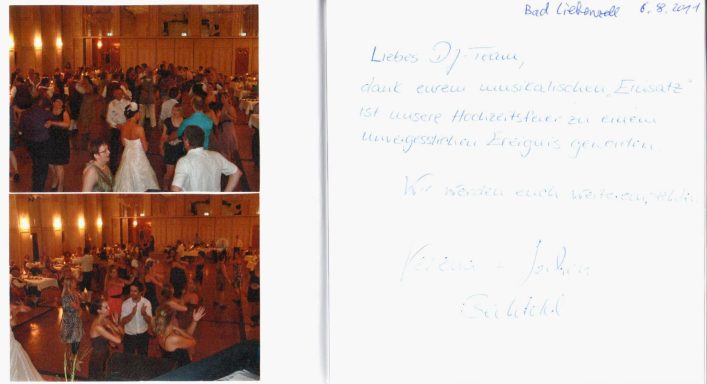 Bad Liebenzell 6.8.2011
Liebes DJ-Team,
dank eurem musikalischen „Einsatz"
ist unsere Hochzeitsfeier zu einem
unvergesslichen Ereignis geworden.
Wir werden euch weiterempfehlen.
Verena